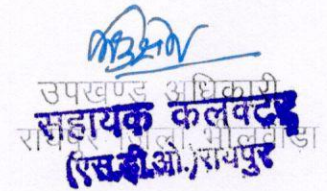 उपखण्ड अधिकारी
सहायक कलेक्टर
रायपुर जिला भीलवाड़ा
(एस.डी.ओ.) रायपुर